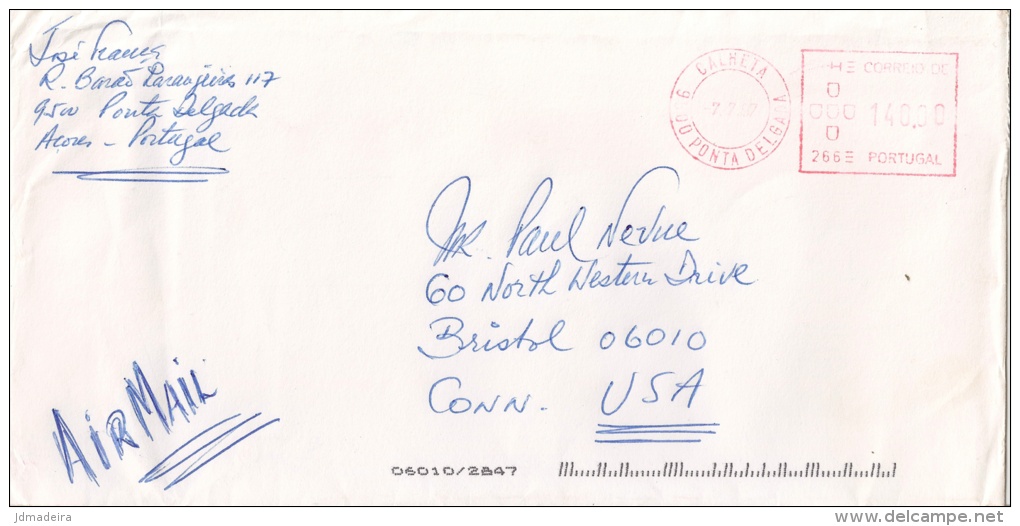 José
R. Barão Laranjeiras 117
9500 Ponta Delgada
Açores - Portugal
CALHETA
9500 PONTA DELGADA
CORREIO DE
140,00
266 PORTUGAL
MR. Paul Nevue
60 North Western Drive
Bristol 06010
CONN. USA
AIR MAIL
06010/2847
jdmadeira
delcampe.net